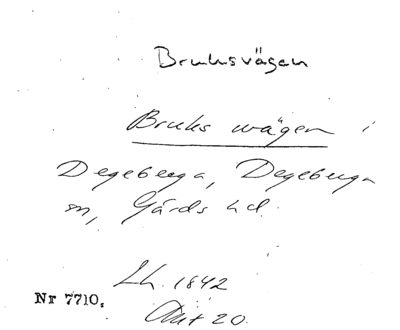 Bruksvägen
Bruks wägen i
Degeberga, Degeberga
sn, Gärds hd.
Lh. 1842
Akt 20.
Nr 7710.